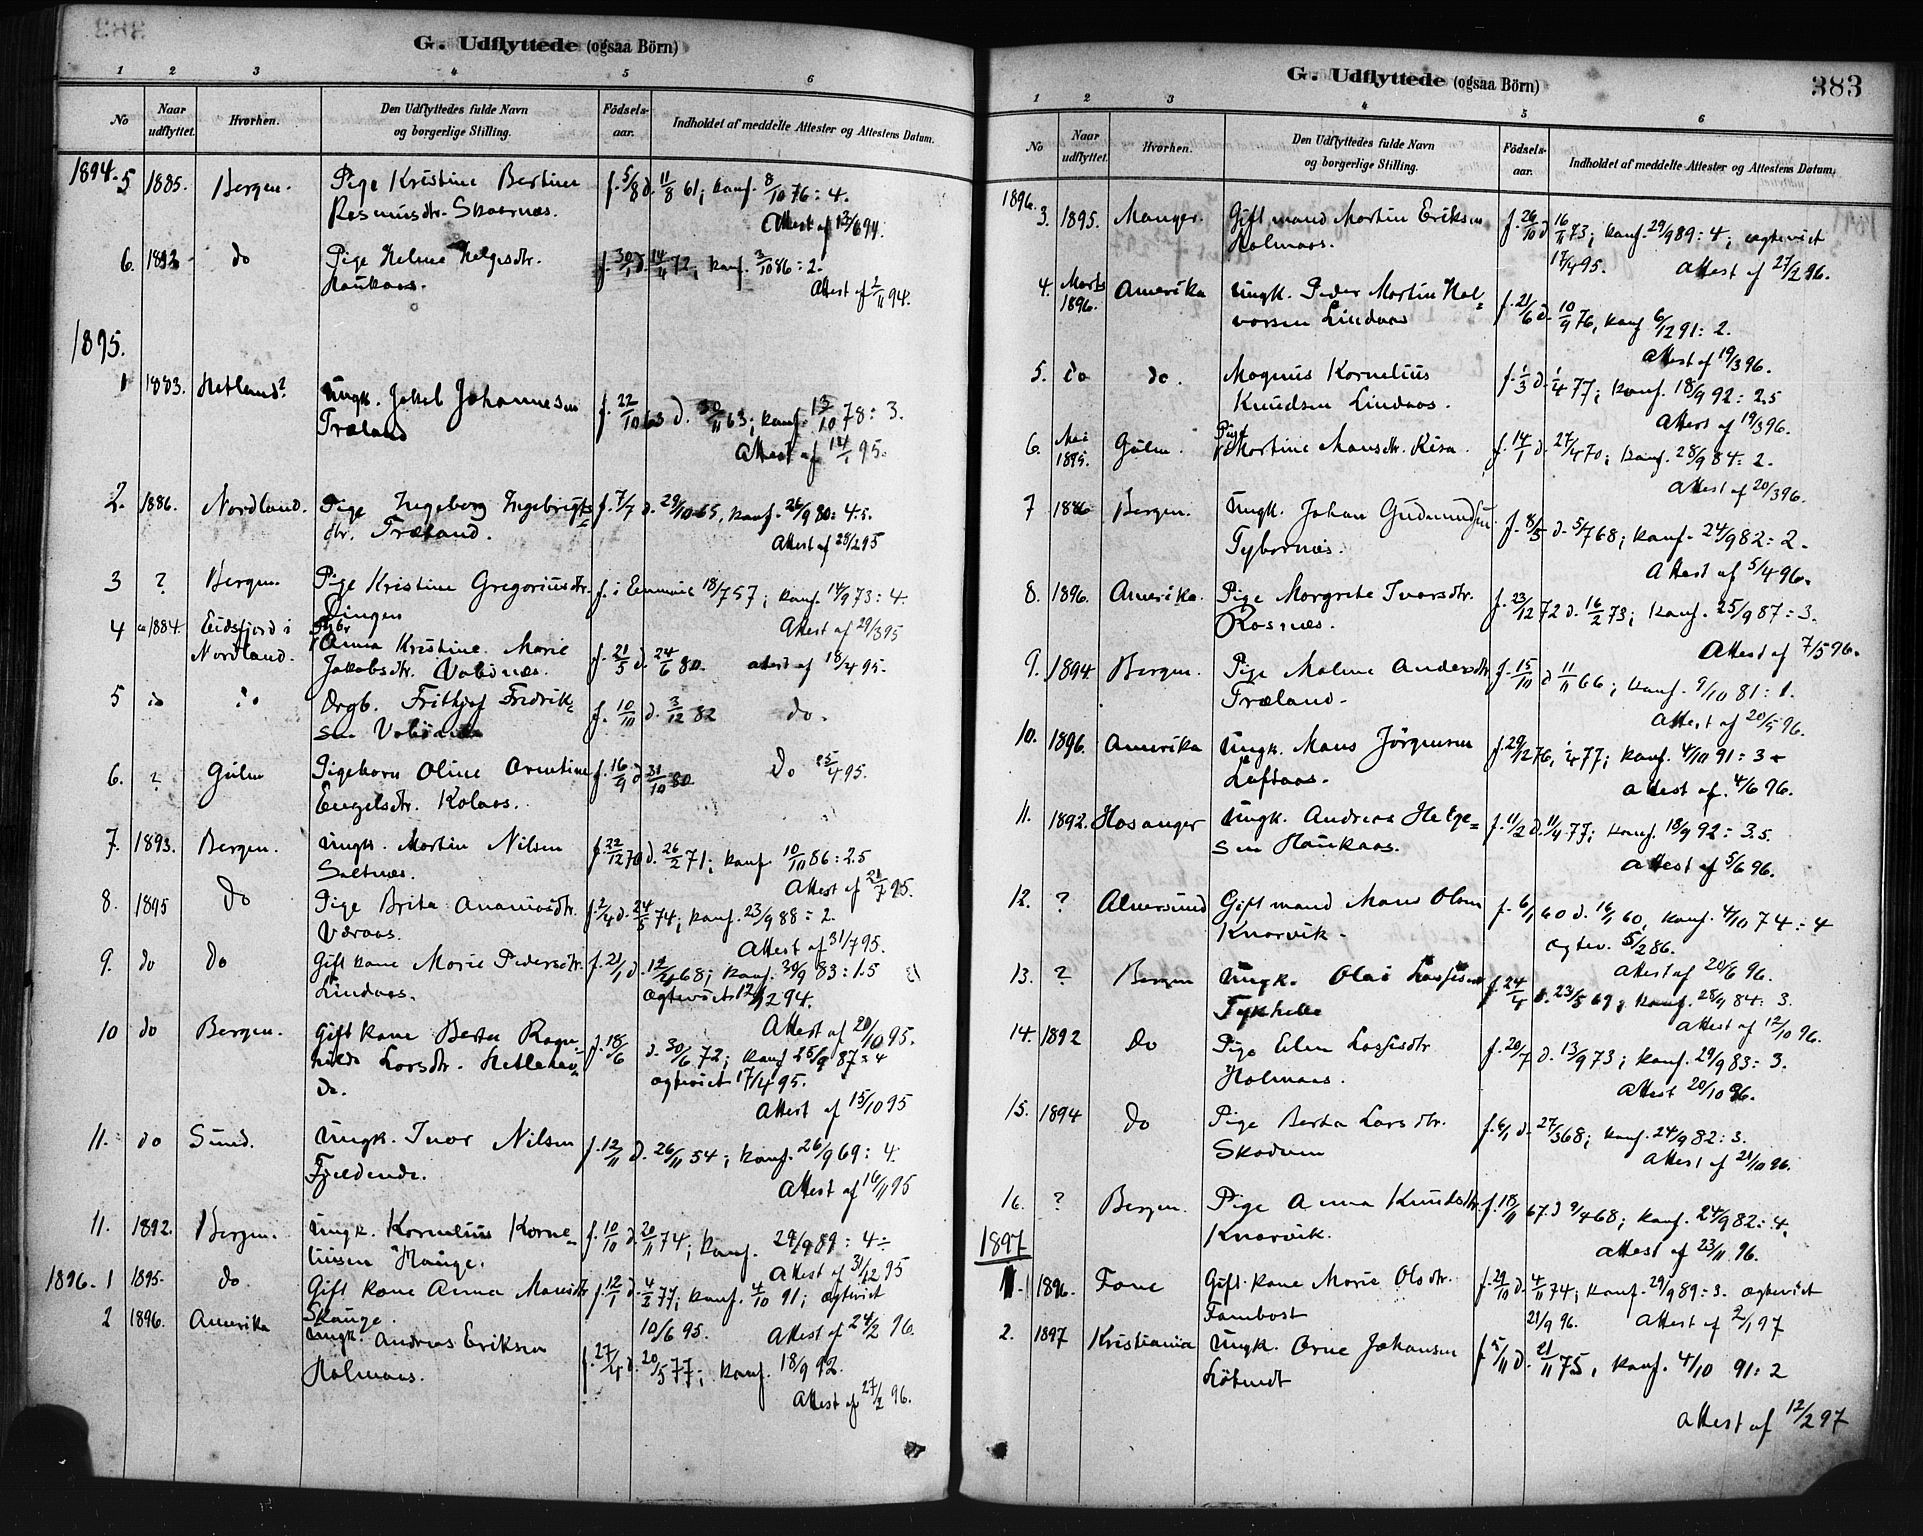 G. Udflyttede (ogsaa Börn)
1 2 3 4 5 6
No
Naar udflyttet.
Hvorhen.
Den Udflyttedes fulde Navn og borgerlige Stilling.
Födsels-aar.
Indholdet af meddelte Attester og Attestens Datum.
1894. 5 1885. Bergen. Pige Kristine Bertine f. 5/8 d. 11/8 61; konf. 8/10 76: 4.
Rasmusdtr. Skaernæs. Attest af 13/6 94.
6. 1892 do Pige Helene Helgesdtr. f. 30/1 d. 14/4 72; konf. 3/10 86: 2.
Haukaas. Attest af 2/11 94.
1895.
1 1883. Hetland? Ungk. Jakob Johannesen f. 22/10 63 d. 30/11 63; konf. 13/10 78: 3.
Træland Attest af 14/1 95.
2. 1886. Nordland. Pige Ingeborg Ingebrigts f. 7/7 d. 29/10 65, konf. 26/9 80: 4.5.
dtr. Træland. Attest af 28/2 95
3 ? Bergen. Pige Kristine Gregoriusdtr. f. i 18/7 57; konf. 14/9 73: 4.
Dingen Attest af 29/3 95
4 ca 1884. Eidsfjord i Pigbr
Nordland. Anna Kristine Marie
Jakobsdtr. f. 21/5 d. 24/6 80. attest af 18/4 95.
5 do do Drgb. Frithjof Fredrik=
sen f. 10/11 d. 3/12 82 do.
6. ? Gulen Pigebarn Oline f. 16/9 d. 31/10 80 do 25/4 95.
Engelsdtr. Kolaas.
7. 1893. Bergen. Ungk. Martin Nilsen f. 22/12 70 d. 26/2 71; konf. 10/11 86: 2.5
Saltnæs. Attest af 21/7 95.
8. 1895 do Pige Brita Ananiasdtr. f. 2/4 d. 24/5 74; konf. 23/9 88: 2.
Væraas. Attest af 31/7 95.
9. do do Gift kone Marie Pedersdtr. f. 21/1 d. 12/4 68; konf. 30/9 83: 1.5
Lindaas. Ægteviet 12/2 94.
Attest af 20/10 95.
10 do Bergen. Gift kone Berta Ragn=
hilde Larsdtr. Hetlehei= f. 18/6 d. 30/6 72; konf. 25/9 87: 4
do. ægteviet 17/4 95.
Attest af 15/10 95
11. do Sund. Ungk. Ivar Nilsen f. 12/11 d. 26/11 54; konf. 26/9 69: 4.
Fjeldende. Attest af 16/11 95
11. 1892. Bergen. Ungk. Kornelius Korne= f. 10/10 d. 20/11 74; konf. 29/9 89: 4÷
liusen Hauge. Attest af 31/12 95
1896. 1 1895. do. Gift kone Anna Monsdtr f. 12/1 d. 4/2 77; konf. 4/10 91; ægteviet
Skauge. 10/6 95. Attest af 24/2 96.
2 1896. Amerika Ungk. Andreas Eriksen
Holmaas. f. 27/4 d. 20/5 77; konf. 18/9 92.
Attest af 27/2 96.
G. Udflyttede (ogsaa Börn)
383
1 2 3 4 5 6
No
Naar udflyttet.
Hvorhen.
Den Udflyttedes fulde Navn og borgerlige Stilling.
Födsels-aar.
Indholdet af meddelte Attester og Attestens Datum.
1896. 3. 1895. Manger. Gift mand Martin Eriksen f. 26/10 d. 16/11 73; konf. 29/9 89: 4; ægteviet
Holmaas. 17/4 95. Attest af 27/2 96.
4. Marts 1896. Amerika Ungk. Peder Martin Hal=
vorsen Lindaas f. 21/6 d. 10/9 76, konf 6/12 91: 2.
Attest af 19/3 96.
5. do do. Magnus Kornelius f. 1/3 d. 1/4 77; konf. 18/9 92: 2.5
Knudsen Lindaas. Attest af 19/3 96.
6. Mai 1895. Gulen. Pige Martine Monsdtr. Risa. f. 14/1 d. 27/4 70; konf. 28/9 84: 2.
Attest af 20/3 96.
7 1886 Bergen. Ungk. Johan Gudmundsen f. 8/5 d. 5/7 68; konf. 24/9 82: 2.
Tybernæs. Attest af 5/4 96.
8. 1896. Amerika. Pige Margrete Ivarsdtr. f. 23/12 72 d. 16/2 73; konf. 25/9 87: 3.
Rosnæs. Attest af 7/5 96.
9. 1894. Bergen. Pige Malene Andersdtr f. 15/10 d 11/11 66; konf. 9/10 81: 1.
Træland. Attest af 20/5 96.
10. 1896. Amerika Ungk. Mons Jörgensen f. 29/12 76, 1/4 77; konf. 4/10 91: 3
Loftaas. Attest af 4/6 96.
11. 1892. Hosanger Ungk. Andreas Helge= f. 11/2 d. 11/4 77; konf. 18/9 92: 3.5.
sen Haukaas. Attest af 5/6 96.
12. ? Alversund Gift mand Mons Olsen f. 6/1 60 d. 16/1 60, konf. 4/10 74: 4
Knarvik. ægtev. 5/2 86.
Attest af 20/6 96.
13. ? Bergen Ungk. Olai Lassesen f. 24/4 d. 23/5 69; konf. 28/9 84: 3.
Tykhelle Attest af 12/10 96.
14. 1892 do Pige Elen Lassesdtr f. 20/7 d. 13/9 73; konf. 29/9 83: 3.
Holmaas. Attest 20/10 96.
15. 1894 do Pige Berta Larsdtr. f. 6/1 d. 27/3 68; konf. 24/9 82: 3.
Skodven Attest af 21/10 96.
16. ? Bergen. Pige Anna Knudsdtr. f. 18/11 67. d 9/4 68; konf. 24/9 82: 4.
Knarvik. Attest af 23/11 96.
1897
1. 1896. Fane Gift kone Marie Olsdtr. f. 29/10 d. 4/11 74; konf. 29/9 89: 3. ægteviet
Fambost 21/9 96. Attest af 2/1 97
2. 1897 Kristiania Ungk. Arne Johansen f 5/11 d. 21/11 75, konf. 4/10 91: 2
Attest af 12/2 97